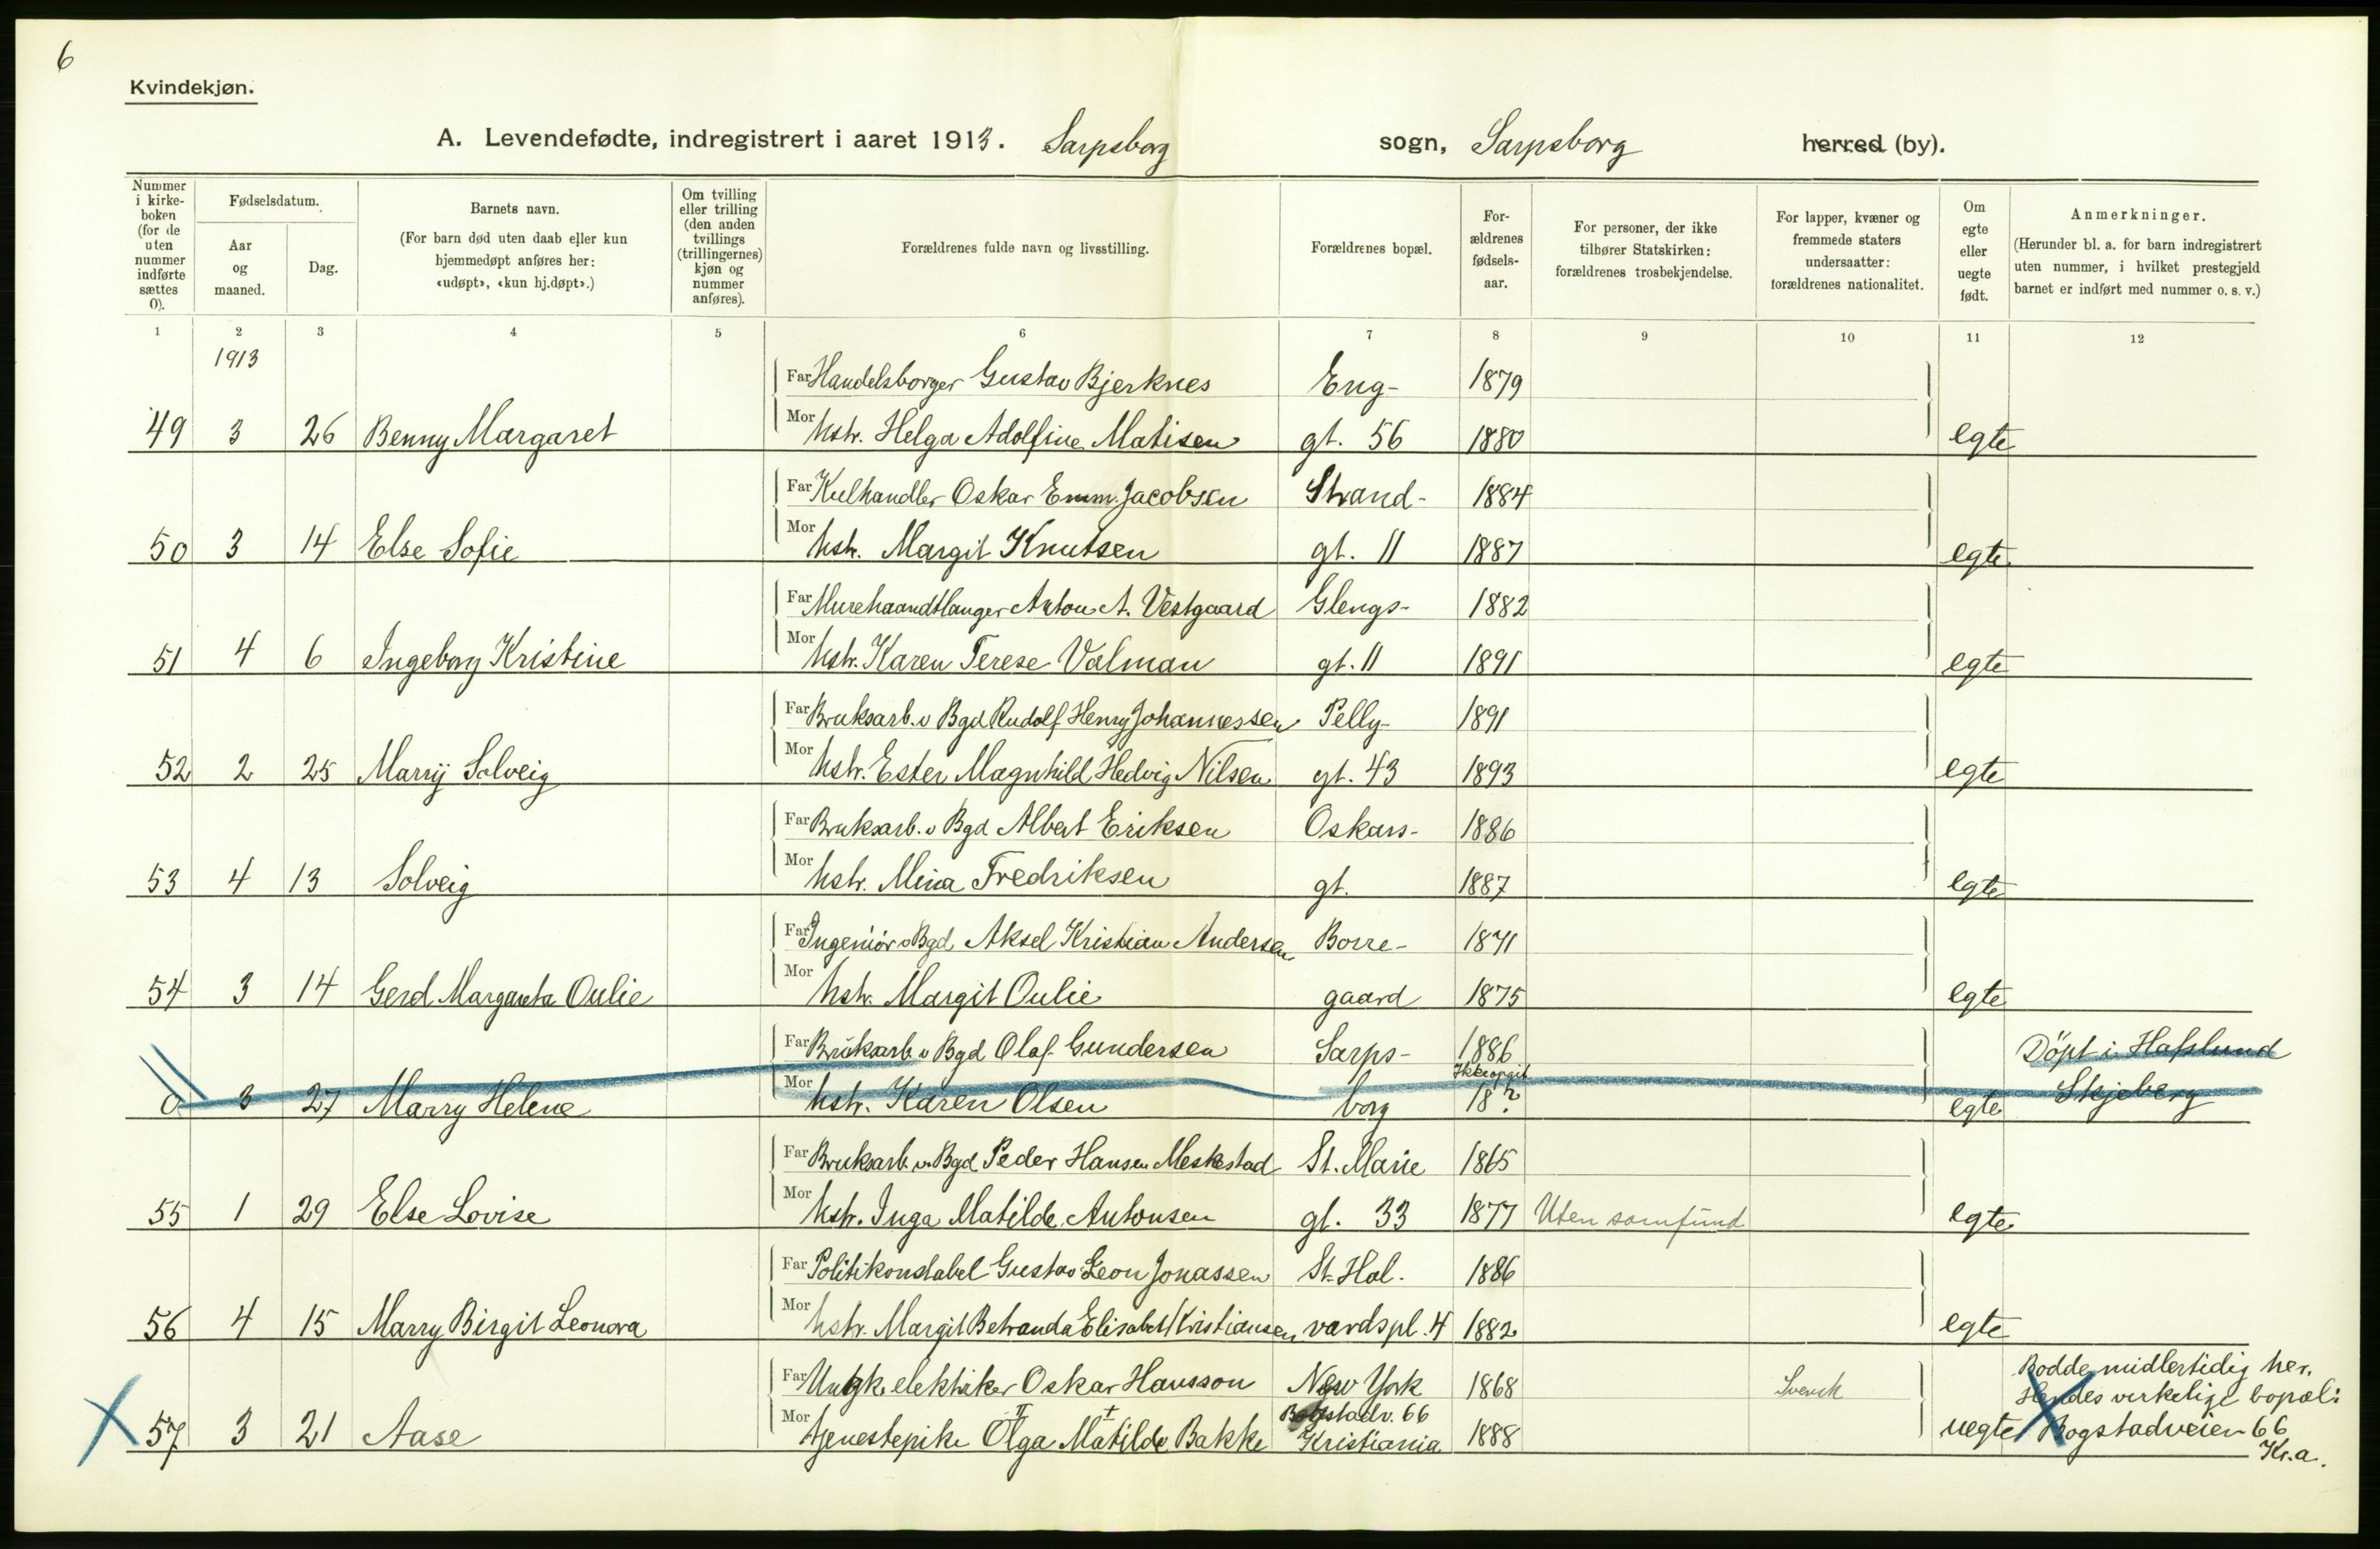 6
Kvindekjøn.
A. Levendefødte, indregistrert i aaret 1913. Sarpsborg sogn, Sarpsborg herred (by).
Nummer i kirke-boken (for de uten nummer indførte sættes 0).
Fødselsdatum.
Aar og maaned.
Dag.
Barnets navn.
(For barn død uten daab eller kun hjemmedøpt anføres her: «udøpt», «kun hj.døpt».)
Om tvilling eller trilling (den anden tvillings (trillingernes) kjøn og nummer anføres).
Forældrenes fulde navn og livsstilling.
Forældrenes bopæl.
For-ældrenes fødsels-aar.
For personer, der ikke tilhører Statskirken: forældrenes trosbekjendelse.
For lapper, kvæner og fremmede staters undersaatter: forældrenes nationalitet.
Om egte eller uegte født.
Anmerkninger.
(Herunder bl. a. for barn indregistrert uten nummer, i hvilket prestegjeld barnet er indført med nummer o. s. v.)
1 2 3 4 5 6 7 8 9 10 11 12
1913
Far Handelsborger Gustav Bjerknes Eng- 1879
49 3 26 Benny Margaret Mor hstr. Helga Adolfine Matisen gt. 56 1880 egte
Far Kulhandler Oskar Emm. Jacobsen Strand- 1884
50 3 14 Else Sofie Mor hstr. Margit Knutsen gt. 11 1887 egte
Far Murehaandtlanger Anton A. Vestgaard Glengs- 1882
51 4 6 Ingeborg Kristine Mor hstr. Karen Terese Valman gt. 11 1891 egte
Far Bruksarb. v Bgd Rudolf Henry Johannessen Pelly- 1891
52 2 25 Marry Solveig Mor hstr. Ester Magnhild Hedvig Nilsen gt. 43 1893 egte
Far Bruksarb. v Bgd Albert Eriksen Oskars- 1886
53 4 13 Solveig Mor hstr. Mina Fredriksen gt. 1887 egte
Far Ingeniör v Bgd. Aksel Kristian Andersen Borre- 1871
54 3 14 Gerd Margareta Oulie Mor hstr. Margit Oulie gaard 1875 egte
Far Bruksarb. v Bgd Olaf Gundersen Sarps- 1886 Döpt i Hafslund
Ikke opgit
0 3 27 Marry Helene Mor hstr. Karen Olsen borg 18? egte Skjeberg
Far Bruksarb. v Bgd Peder Hansen Meskestad St. Marie 1865
55 1 29 Else Lovise Mor hstr. Inga Matilde Antonsen gt. 33 1877 Uten samfund egte
Far Politikonstabel Gustav Leon Jonassen St. Hal. 1886
56 4 15 Marry Birgit Leonora Mor hstr. Margit Betranda Elisabet Kristiansen vardspl. 4 1882 egte
Bodde midlertidig her.
Far Ungk elektriker Oskar Hansson New York 1868 Svensk Hendes virkelige bopæl:
Bogstadv. 66
57 3 21 Aase Mor tjenestepike Olga Matilde Bakke Kristiania 1888 uegte Bogstadveien 66
Kr.a.